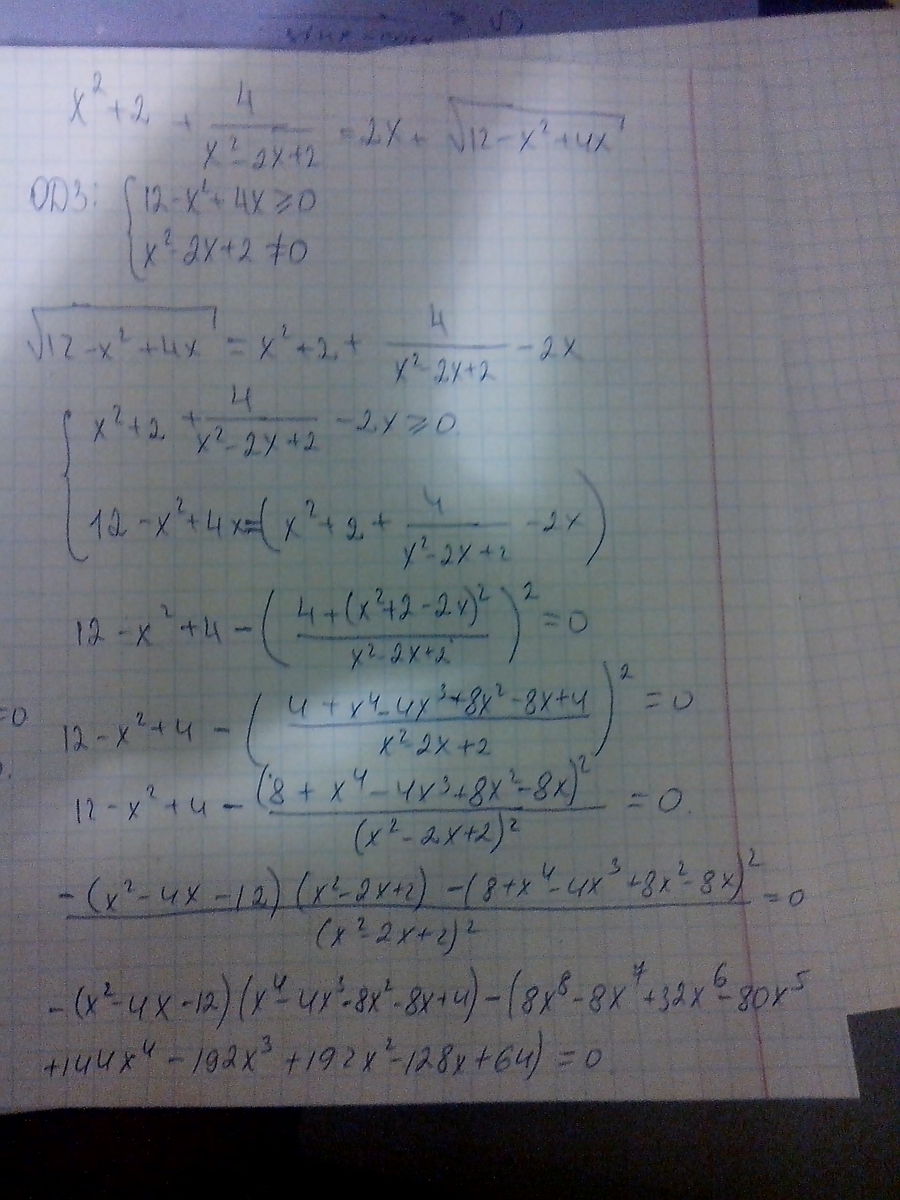 x² + 2 + 4/(x² - 2x + 2) = 2x + √(12 - x² + 4x)
ОДЗ: { 12 - x² + 4x ≥ 0
x² - 2x + 2 ≠ 0
√(12 - x² + 4x) = x² + 2 + 4/(x² - 2x + 2) - 2x
{ x² + 2 + 4/(x² - 2x + 2) - 2x ≥ 0
12 - x² + 4x = (x² + 2 + 4/(x² - 2x + 2) - 2x)
12 - x² + 4 - ((4 + (x² + 2 - 2x)²)/(x² - 2x + 2))² = 0
=0
12 - x² + 4 - ((4 + x⁴ - 4x³ + 8x² - 8x + 4)/(x² - 2x + 2))² = 0
12 - x² + 4 - (8 + x⁴ - 4x³ + 8x² - 8x)²/(x² - 2x + 2)² = 0.
(-(x² - 4x - 12)(x² - 2x + 2) - (8 + x⁴ - 4x³ + 8x² - 8x)²)/(x² - 2x + 2)² = 0
-(x² - 4x - 12)(x⁴ - 4x³ - 8x² - 8x + 4) - (8x⁸ - 8x⁷ + 32x⁶ - 80x⁵
+ 144x⁴ - 192x³ + 192x² - 128x + 64) = 0